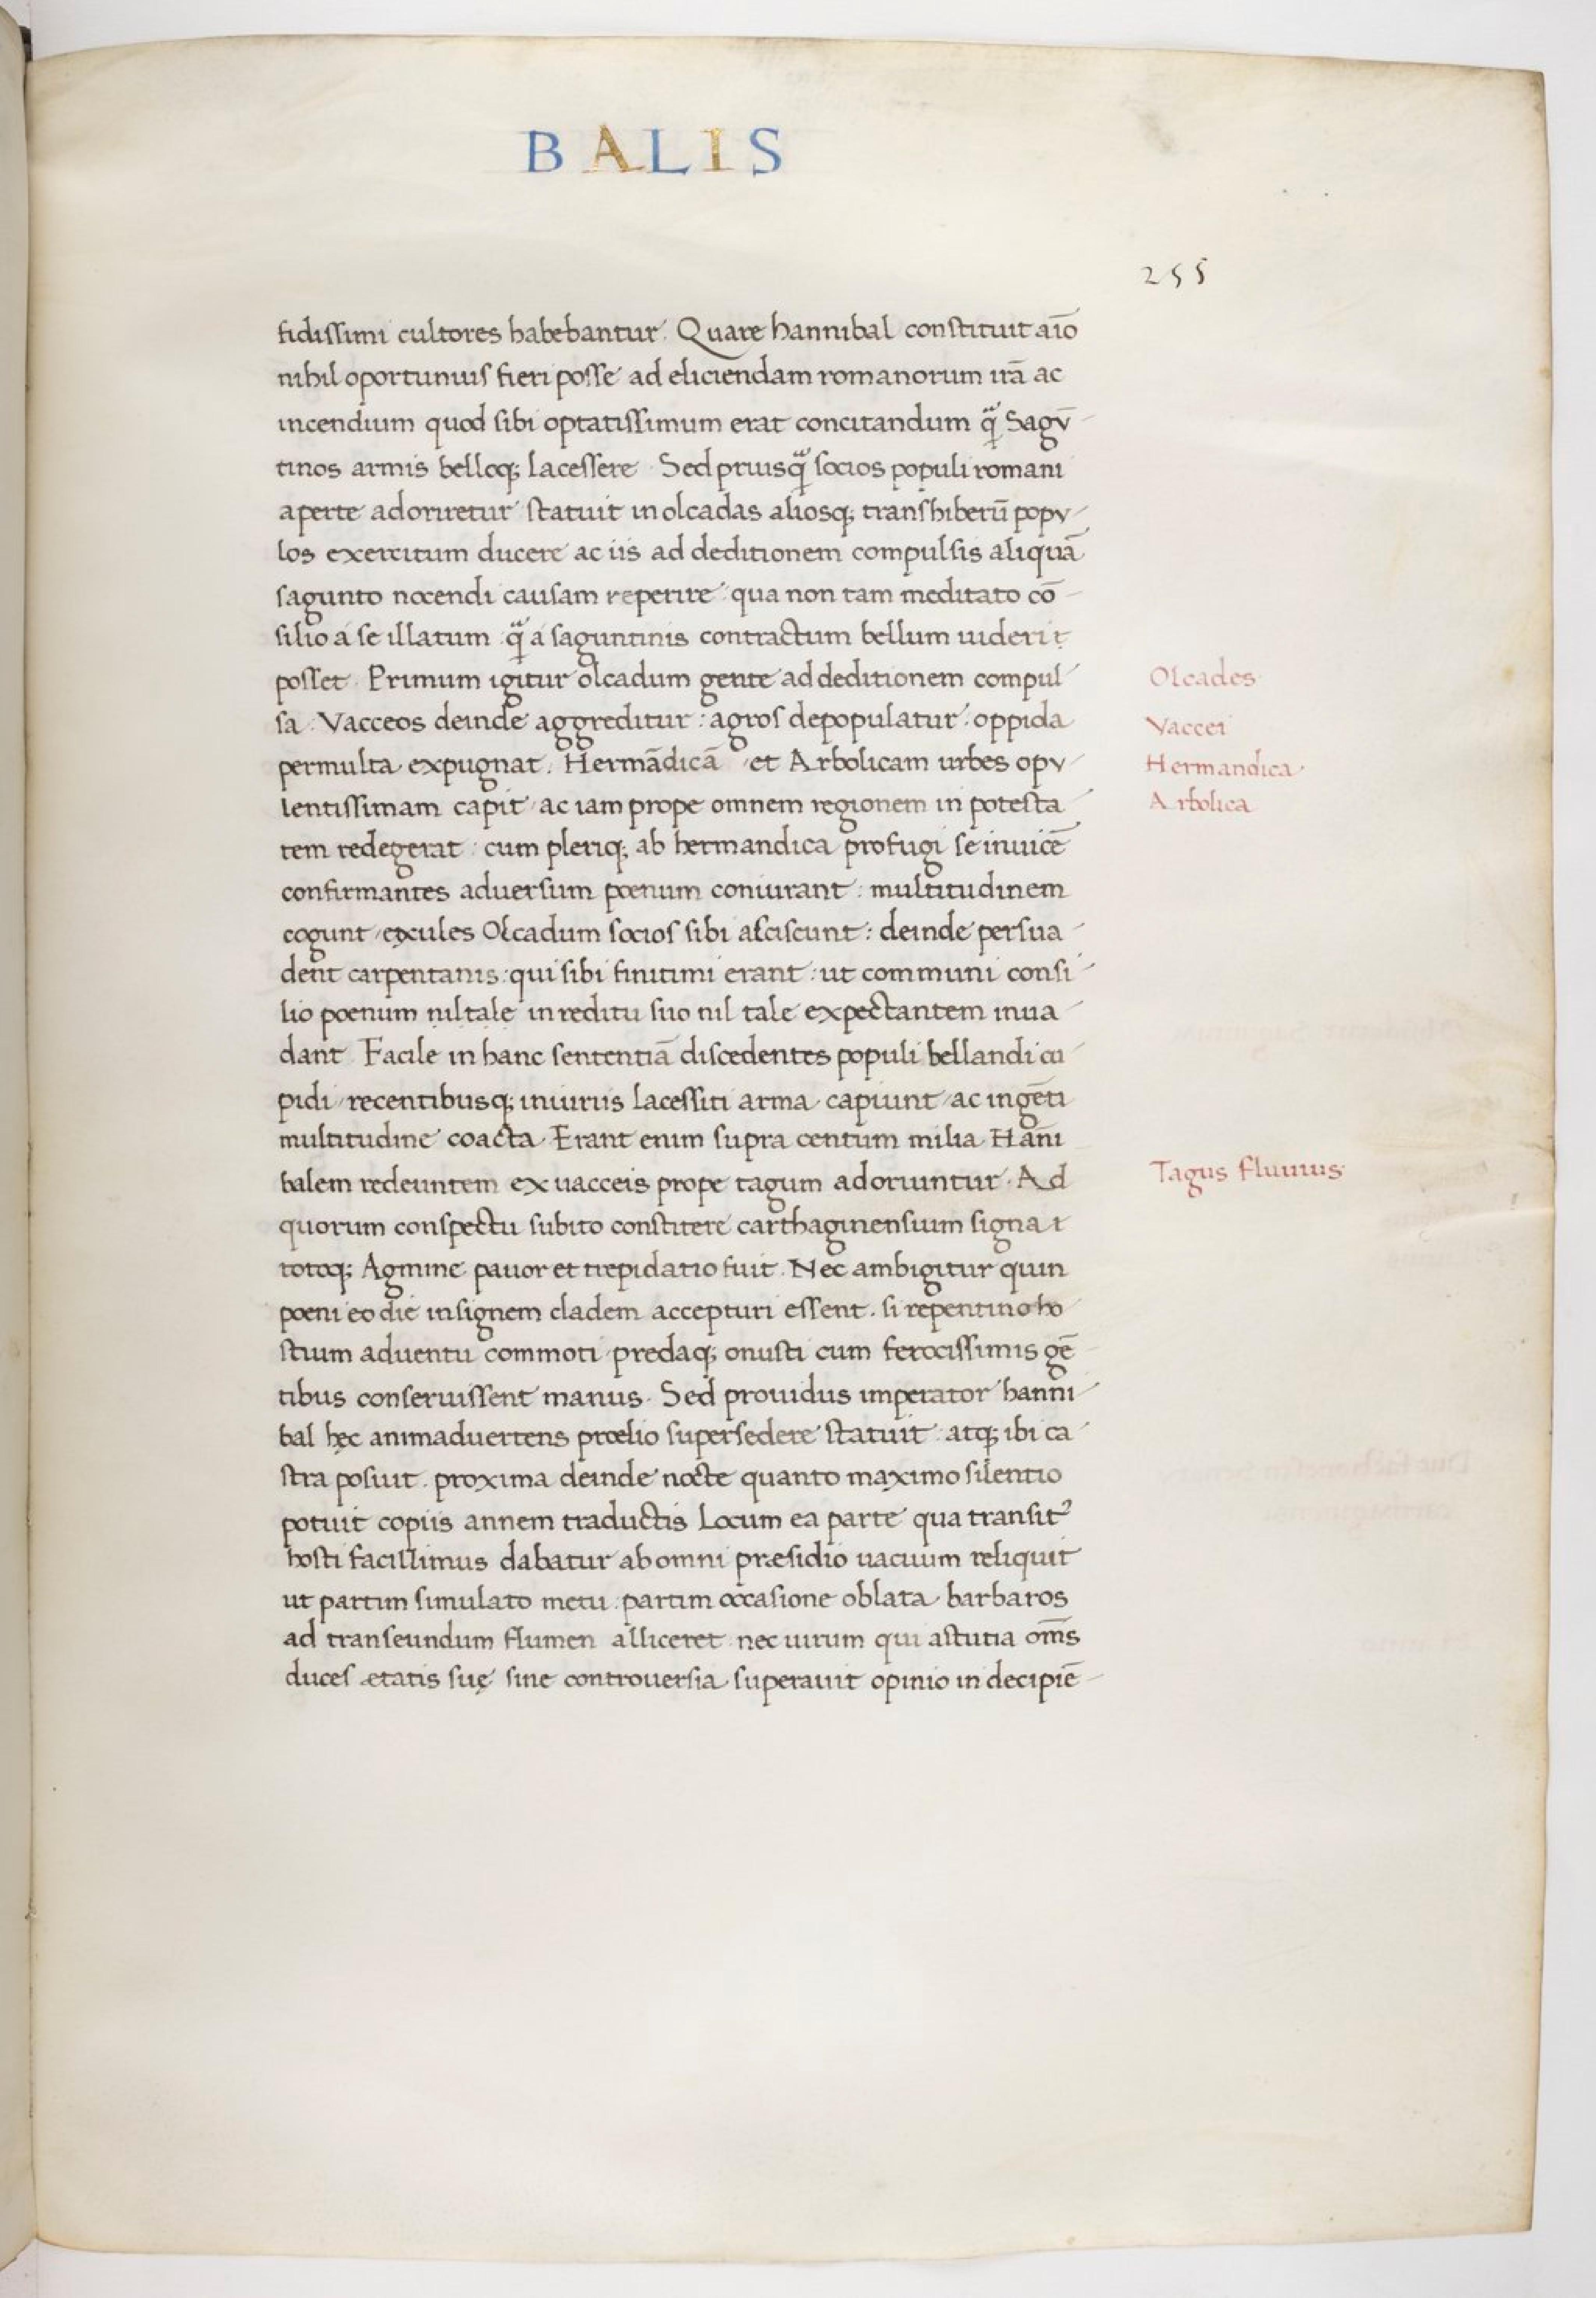 BALIS
255
fidissimi cultores habebantur. Quare hannibal constituit aīo
nihil oportunius fieri posse ad eliciendam romanorum irā ac
incendium quod sibi optatissimum erat concitandum q̃ Sagv̄-
tinos armis belloq; lacessere. Sed priusq̃ socios populi romani
aperte adoriretur statuit in olcadas aliosq; transhiberū popv-
los exercitum ducere ac iis ad deditionem compulsis aliquā
sagunto nocendi causam reperire: qua non tam meditato cō-
silio a se illatum: q̃ a saguntinis contractum bellum uideri t
posset. Primum igitur olcadum gente ad deditionem compul-
sa. Vacceos deinde aggreditur: agros depopulatur: oppida
permulta expugnat. Hermādicā et Arbolicam urbes opv-
lentissimam capit ac iam prope omnem regionem in potesta-
tem redegerat: cum pleriq; ab hermandica profugi se inuicē
confirmantes aduersum poenum coniurant: multitudinem
cogunt exules Olcadum socios sibi asciscunt: deinde persua-
dent carpentanis: qui sibi finitimi erant: ut communi consi-
lio poenum nil tale in reditu suo nil tale expectantem inua-
dant. Facile in hanc sententiā discedentes populi bellandi cu-
pidi recentibusq; iniuriis lacessiti arma capiunt ac ingēti
multitudine coacta. Erant enim supra centum milia Hāni
balem redeuntem ex uacceis prope tagum adoriuntur. Ad
quorum conspectu subito constitere carthaginensium signa t
totoq; Agmine pauor et trepidatio fuit. Nec ambigitur quin
poeni eo die insignem cladem accepturi essent. si repentino ho
stium aduentu commoti predaq; onusti cum ferocissimis gē-
tibus conseruissent manus. Sed prouidus imperator hanni-
bal hęc animaduertens proelio supersedere statuit: atq; ibi ca-
stra posuit. proxima deinde nocte quanto maximo silentio
potuit copiis annem traductis Locum ea parte qua transit᷒
hosti facillimus dabatur ab omni præsidio uacuum reliquit
ut partim simulato metu: partim occasione oblata barbaros
ad transeundum flumen alliceret: nec uirum qui astutia om̄s
duces ætatis suę sine controuersia superauit opinio in decipiē-
Olcades
Vaccei
Hermandica
Arbolica
Tagus fluuius